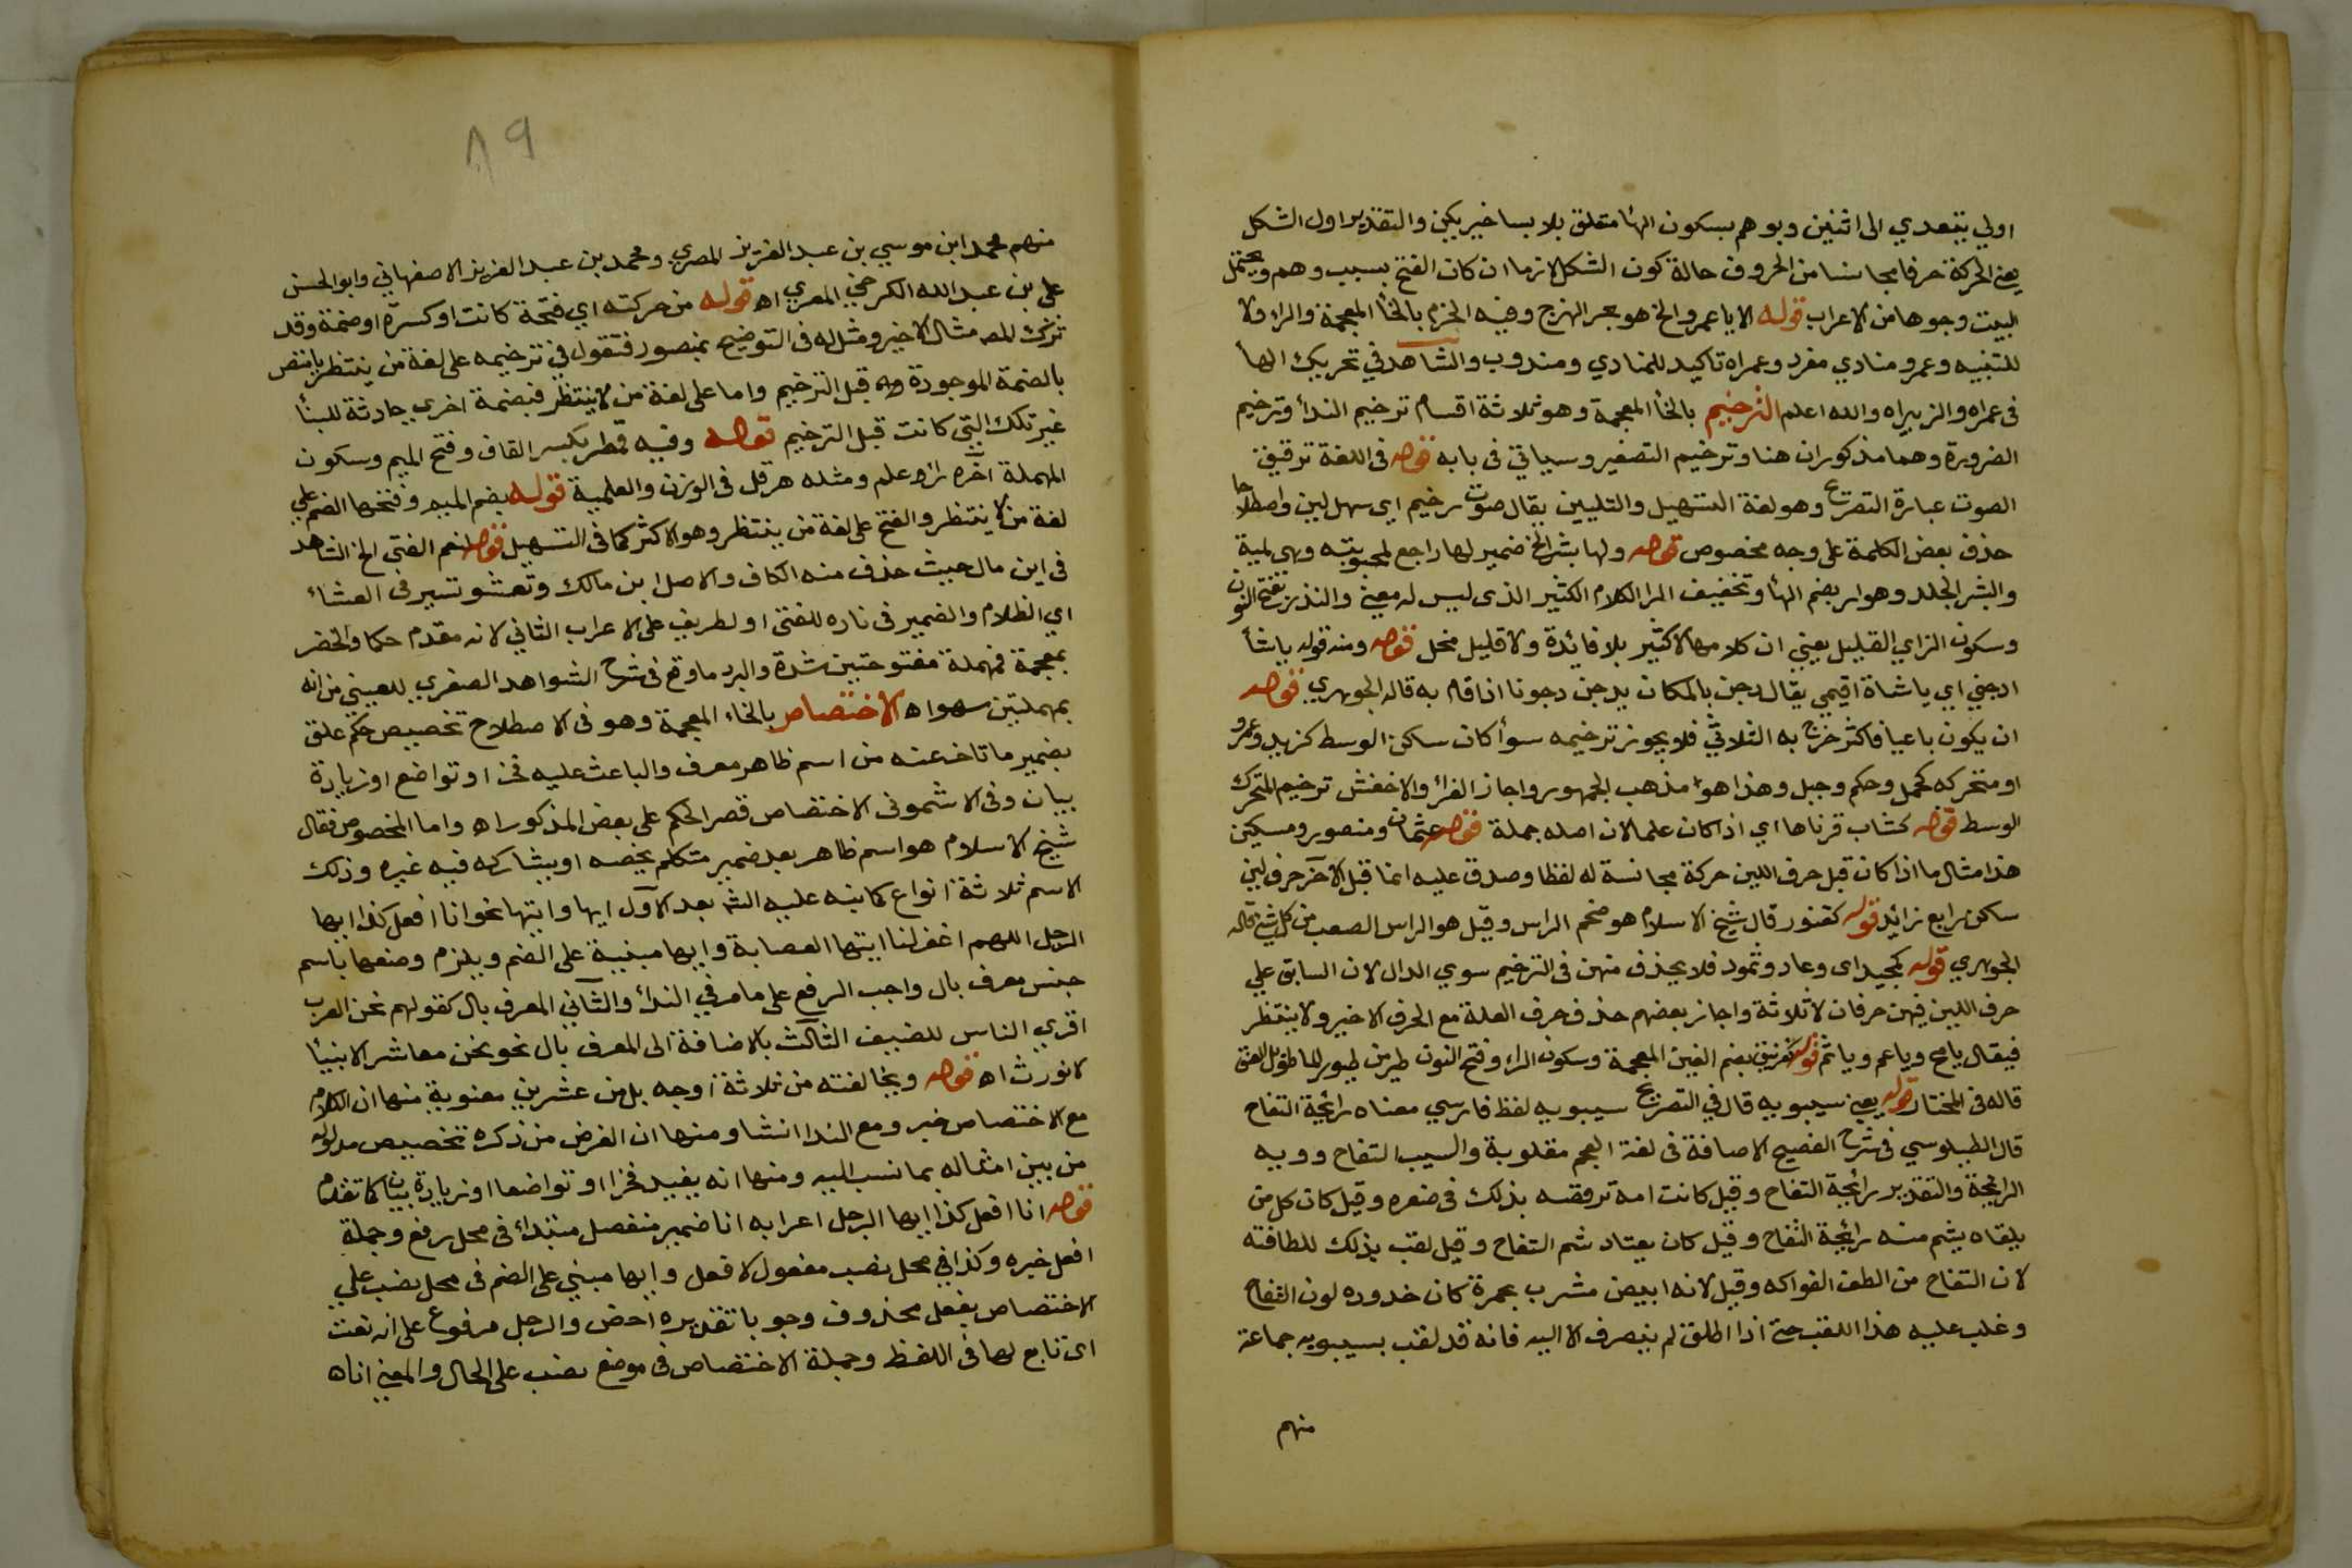 اولي يتعدي الى اثنين وبوهم بسكون الهأ متعلق بلا بسا خبر يكن والتقدير اول الشكل
يعني الحركة حرفا مجانسا من الحروف حالة كون الشكل لازما ان كان الفتح بسبب وهم ويحتمل
البيت وجوها من الاعراب قوله الا يا عمرو الخ هو بحر الهزج وفيه الخرم بالخأ المعجمة والراء ولا
للتنبيه وعمرو منادي مفرد وعمراه تاكيد للمنادي ومندوب والشاهد في تحريك الهأ
في عمراه والزبيراه والله اعلم الترخيم بالخأ المعجمة وهو ثلاثة اقسام ترخيم الندأ وترخيم
الضرورة وهما مذكوران هنا وترخيم التصغير وسياتي في بابه قوله في اللغة ترقيق
الصوت عبارة التصريح وهو لغة التسهيل والتليين يقال صوت رخيم اي سهل لين واصطلاحا
حذف بعض الكلمة على وجه مخصوص قوله ولها بشر الخ ضمير لها راجع لمحبوبته وهي لمية
والبشر الجلد وهراء بضم الهأ وتخفيف الرا الكلام الكثير الذي ليس له معني والنزر بفتح النون
وسكون الزاي القليل يعني ان كلامها لا كثير بلا فائدة ولا قليل مخل قوله ومنه قوله ياشأ
ادجني اي ياشاة اقيمي يقال دجن بالمكان يدجن دجونا اذا قام به قاله الجوهري قوله
ان يكون رباعيا فاكثر خرج به الثلاثي فلا يجوز ترخيمه سوأ كان ساكن الوسط كزيد وعمرو
او متحركه كجمل وحكم وجبل وهذا هو مذهب الجمهور واجاز الفرأ والاخفش ترخيم المتحرك
الوسط قوله كشاب قرناها اي اذا كان علما لان اصله جملة قوله عثمان ومنصور ومسكين
هذا مثال ما اذا كان قبل حرف اللين حركة مجانسة له لفظا وصدق عليه انما قبل الآخر حرف لين
ساكن رابع زائد قوله كقنور قال شيخ الاسلام هو ضخم الراس وقيل هو الراس الصعب من كل شئ قاله
الجوهري قوله كمجيد اي وعاد وثمود فلا يحذف منهن في الترخيم سوي الدال لان السابق علي
حرف اللين فيهن حرفان لا ثلاثة واجاز بعضهم حذف حرف العلة مع الحرف الاخير ولا ينتظر
فيقال يا مج ويا عم ويا ثم قوله كغرنيق بضم الغين المعجمة وسكون الراء وفتح النون طير من طيور الما طويل العنق
قاله في المختار قوله يعني سيبويه قال في التصريح سيبويه لفظ فارسي معناه رائحة التفاح
قال الطبلوسي في شرح الفصيح الاضافة في لغة العجم مقلوبة والسيب التفاح وويه
الرائحة والتقدير رائحة التفاح وقيل كانت امه ترقصه بذلك في صغره وقيل كان كل من
يلقاه يشم منه رائحة التفاح وقيل كان يعتاد شم التفاح وقيل لقب بذلك للطافته
لان التفاح من الطف الفواكه وقيل لانه ابيض مشرب بحمرة كان خدوده لون التفاح
وغلب عليه هذا اللقب حتى اذا اطلق لم ينصرف الا اليه فانه قد لقب بسيبويه جماعة
منهم
٨٩
منهم محمد ابن موسي بن عبد العزيز المصري ومحمد بن عبد العزيز الاصفهاني وابو الحسن
على بن عبد الله الكرخي المغربي اه قوله من حركته اي فتحة كانت او كسرة او ضمة وقد
ترك المص مثال الاخير ومثل له في التوضيح بمنصور فتقول في ترخيمه على لغة من ينتظر يا منص
بالضمة الموجودة قبل الترخيم واما على لغة من لا ينتظر فبضمة اخري حادثة للبنأ
غير تلك التي كانت قبل الترخيم قوله وفيه قمطر بكسر القاف وفتح الميم وسكون
المهملة آخره راء علم ومثله هرقل في الوزن والعلمية قوله بضم الميم وفتحها الضم علي
لغة من لا ينتظر والفتح على لغة من ينتظر وهو الاكثر كما في التسهيل قوله لنعم الفتى الخ الشاهد
في ابن مال حيث حذف منه الكاف والاصل ابن مالك وتعشو تسير في العشاء
اي الظلام والضمير في ناره للفتى او لطريف على الاعراب الثاني لانه مقدم حكما والخصر
بمعجمة فمهملة مفتوحتين شدة والبرد ما وقع في شرح الشواهد الصغري للعيني من انه
بمهملتين سهو اه الاختصاص بالخاء المعجمة وهو في الاصطلاح تخصيص حكم علق
بضمير ما تاخر عنه من اسم ظاهر معرف والباعث عليه فخر او تواضع او زيادة
بيان وفي الاشموني الاختصاص قصر الحكم على بعض المذكور اه واما المخصوص فقال
شيخ الاسلام هو اسم ظاهر بعد ضمير متكلم يخصه او يشاركه فيه غيره وذلك
الاسم ثلاثة انواع كما نبه عليه الش بعد الآول ايها وايتها نحو انا افعل كذا ايها
الرجل اللهم اغفر لنا ايتها العصابة وايها مبنية على الضم ويلزم وصفها باسم
جنس معرف بال واجب الرفع على ما مر في الندأ والثاني المعرف بال كقولهم نحن العرب
اقري الناس للضيف الثالث بالاضافة الى المعرف بال نحو نحن معاشر الانبيأ
لا نورث اه قوله ويخالفته من ثلاثة اوجه بل من عشرين معنوية منها ان الكلام
مع الاختصاص خبر ومع الندا انشا ومنها ان الغرض من ذكره تخصيص مدلوله
من بين امثاله بما نسب اليه ومنها انه يفيد فخرا او تواضعا او زيادة بيان كما تقدم
قوله انا افعل كذا ايها الرجل اعرابه انا ضمير منفصل مبتدأ في محل رفع وجملة
افعل خبره وكذا في محل نصب مفعول لافعل وايها مبني على الضم في محل نصب علي
الاختصاص بفعل محذوف وجوبا تقديره اخص والرجل مرفوع على انه نعت
اي تابع لها في اللفظ وجملة الاختصاص في موضع نصب على الحال والمعنى انا اه